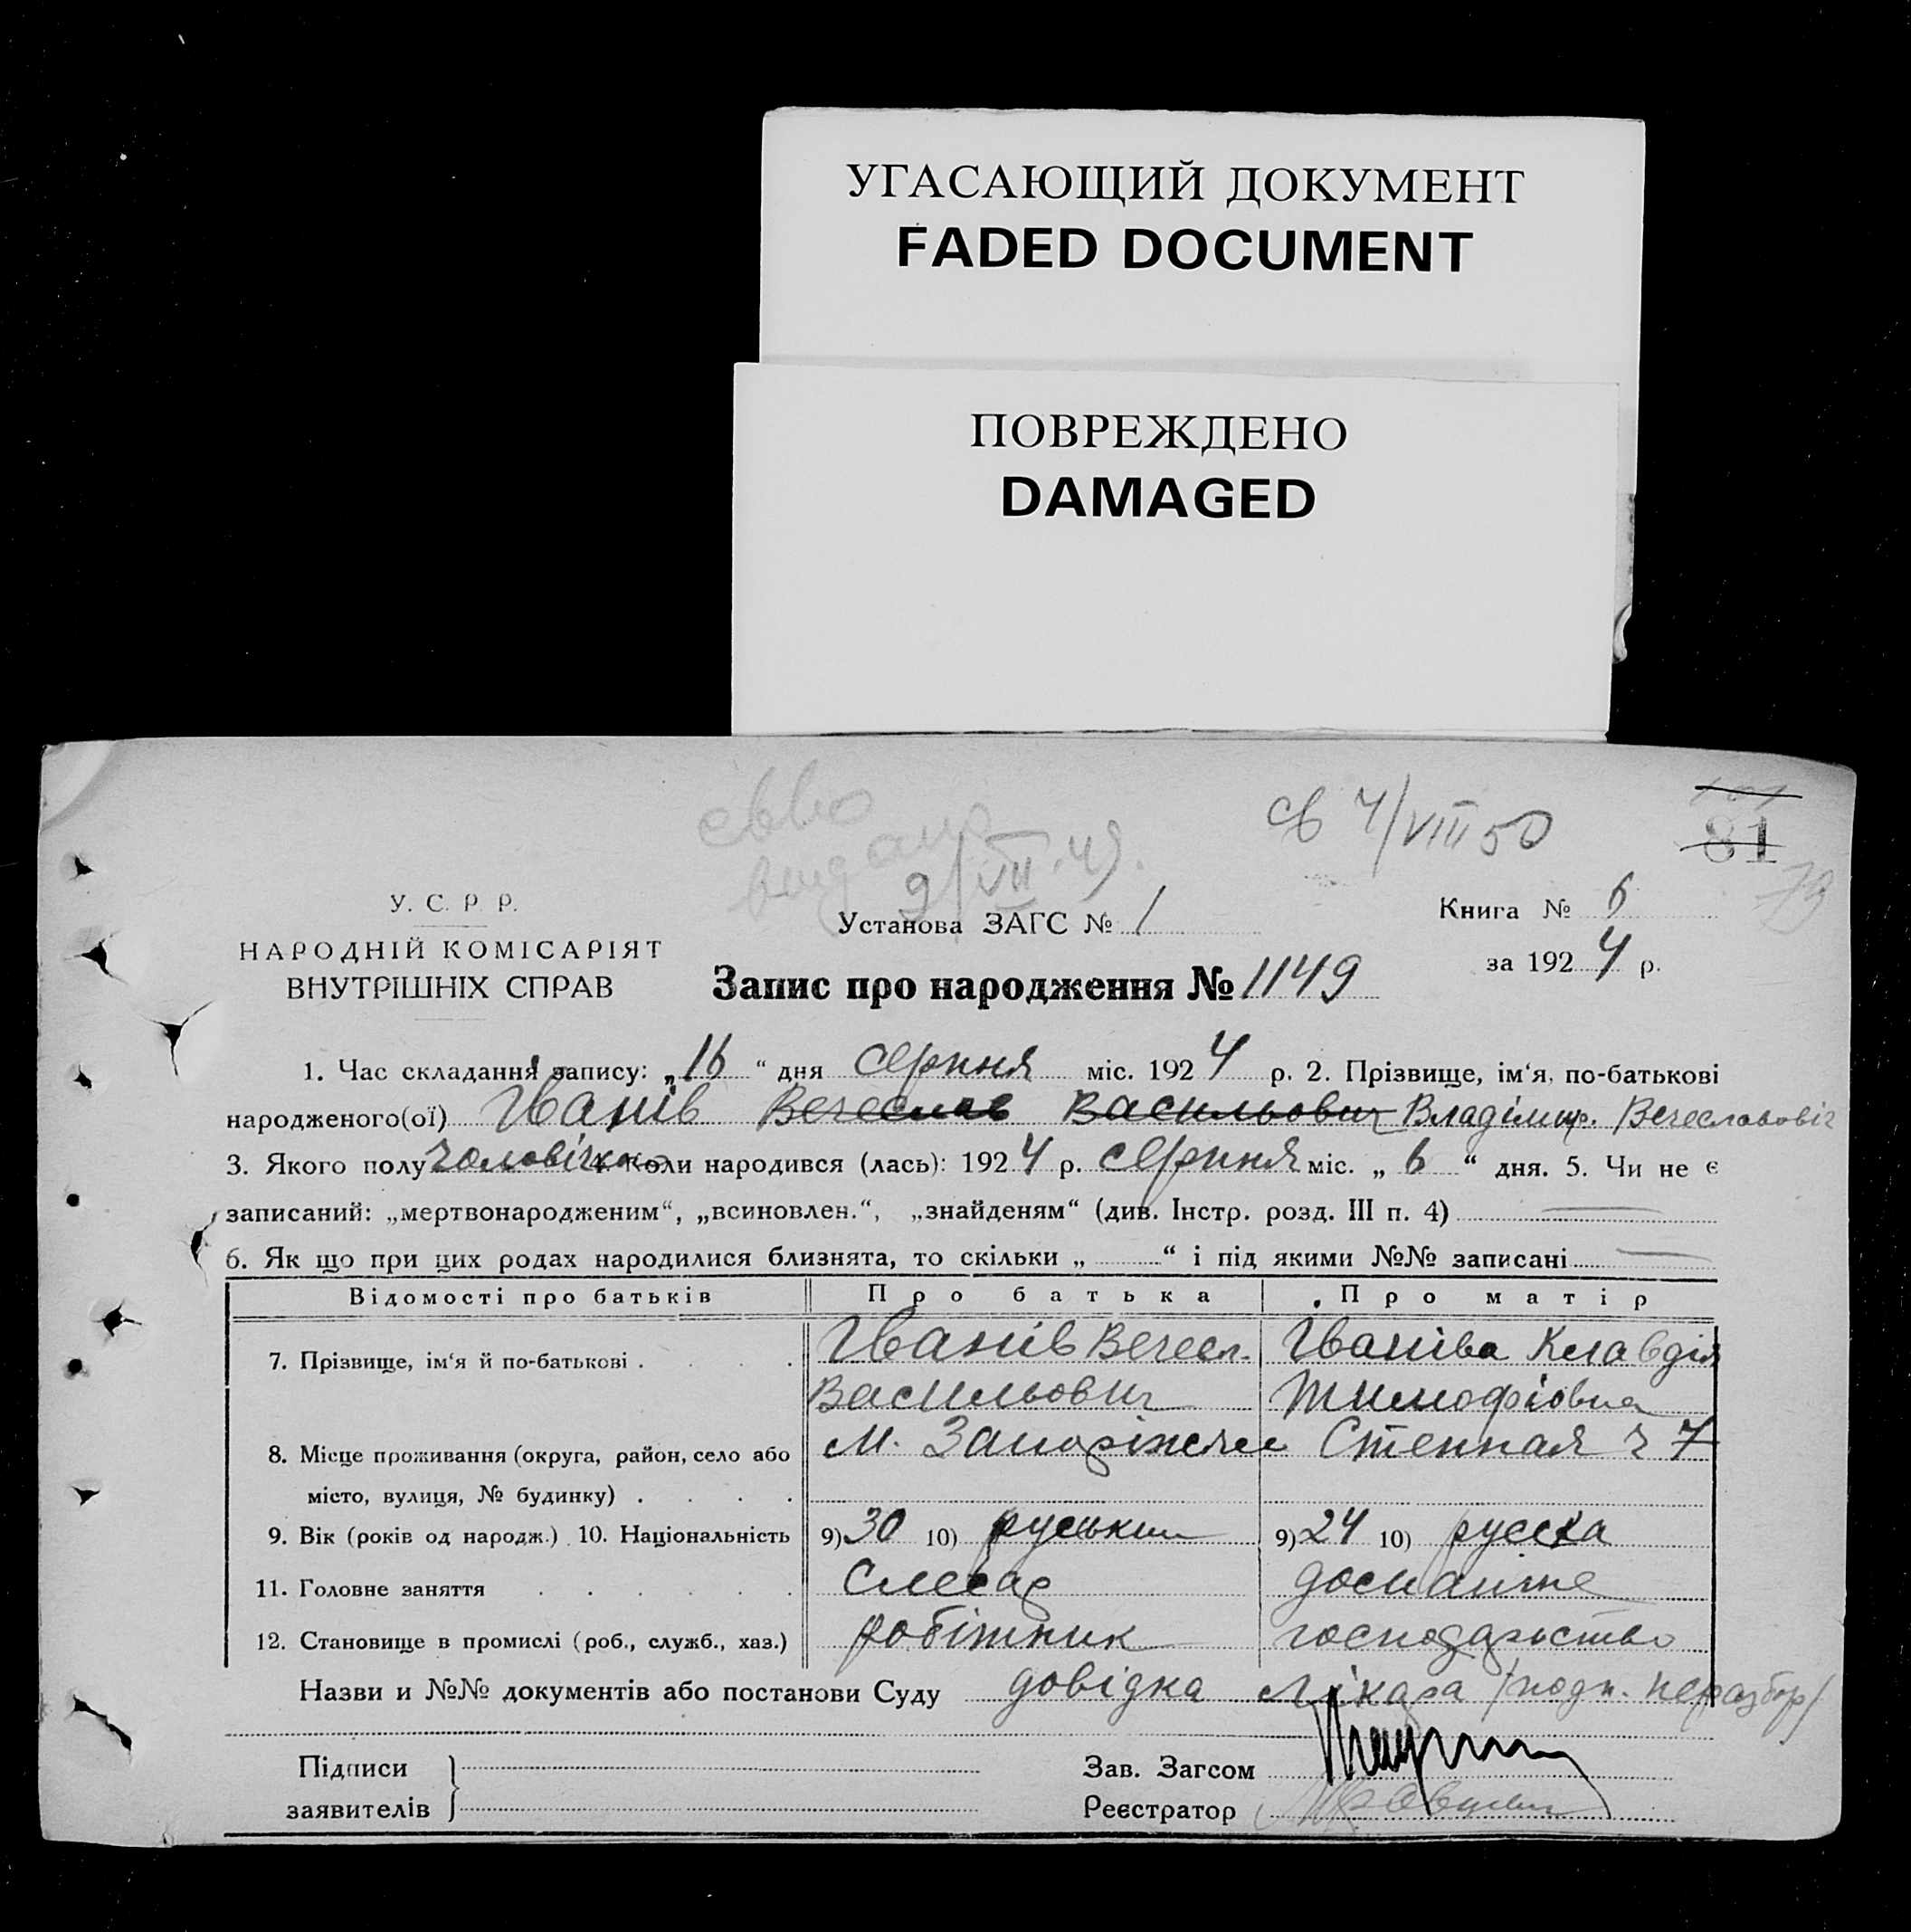 УГАСАЮЩИЙ ДОКУМЕНТ
FADED DOCUMENT
ПОВРЕЖДЕНО
DAMAGED
св 4/VIII 50
81
79
9/VII.49.
У. С. Р. Р.
НАРОДНІЙ КОМІСАРІЯТ
ВНУТРІШНІХ СПРАВ
Установа ЗАГС № 1
Книга № 6
за 1924 р.
Запис про народження № 1149
1. Час складання запису: „16“ дня серпня міс. 1924 р. 2. Прізвище, ім‘я, по-батькові
народженого(ої) Іванів Вечеслав Васильович Владімир. Вечеславовіч
3. Якого полу чоловічого 4. Коли народився (лась): 1924 р. серпня міс. „6“ дня. 5. Чи не є
записаний: „мертвонародженим“, „всиновлен.“, „знайденям“ (див. Інстр. розд. III п. 4)
6. Як що при цих родах народилися близнята, то скільки „ “ і під якими №№ записані
Відомості про батьків Про батька Про матір
7. Прізвище, ім‘я й по-батькові . . . . Іванів Вечесл. Іваніва Клавдія
Васильович Тимофіовна
8. Місце проживання (округа, район, село або м. Запоріжже Степная ч 7
місто, вулиця, № будинку) . . . .
9. Вік (років од народж.) 10. Національність 9) 30 10) руський 9) 24 10) русска
11. Головне заняття . . . . . . Слесар домашнє
12. Становище в промислі (роб., служб., хаз.) робітник господарьство
Назви и №№ документів або постанови Суду довідка лікаря /подп. неразбор/
Підписи
заявителів
Зав. Загсом
Реєстратор